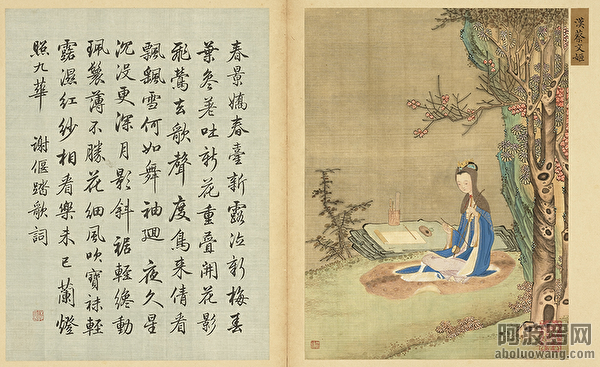 漢蔡文姬
春景嬌春臺新露泣新梅春
葉參差吐新花重疊開花影
飛鶯去歌聲度鳥來倩看
飄颻雪何如舞袖迴 夜久星
沉没更深月影斜裾輕纔動
珮鬟薄不勝花細風吹寶袜輕
露濕紅紗相看樂未已蘭燈
照九華 謝偃踏歌詞
阿波罗网
aboluowang.com